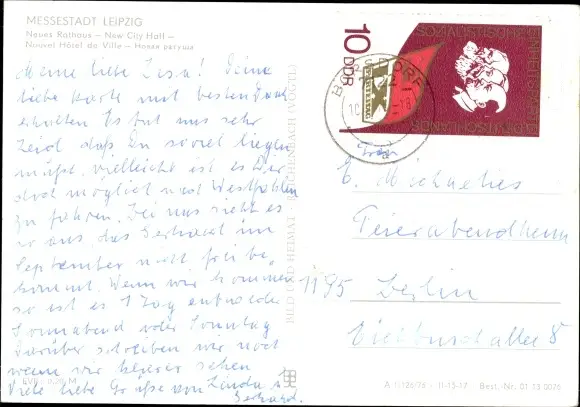 MESSESTADT LEIPZIG
Neues Rathaus — New City Hall —
Nouvel Hôtel de Ville — Новая ратуша
Meine liebe Resa! Deine
liebe Karte mit bestem Dank
erhalten. Es tut uns sehr
leid daß Du soviel liegen
mußt, vielleicht ist es Dir
doch möglich nach Westfahlen
zu fahren. Bei uns sieht es
so aus, das Gerhard im
September nicht frei be,
kommt. Wenn wir kommen
so ist es 1 Tag entweder
Sonnabend oder Sonntag
darüber schreiben wir noch
wenn wir klarer sehen
Viele liebe Grüße von Linda u.
Gerhard.
EVP 0,20 M
BILD UND HEIMAT · REICHENBACH (VOGTL)
10
DDR
E. Michaelies
Feierabendheim
1195 Berlin
8
A 1/126/75 III-15-17 Best.-Nr. 01 13 0076